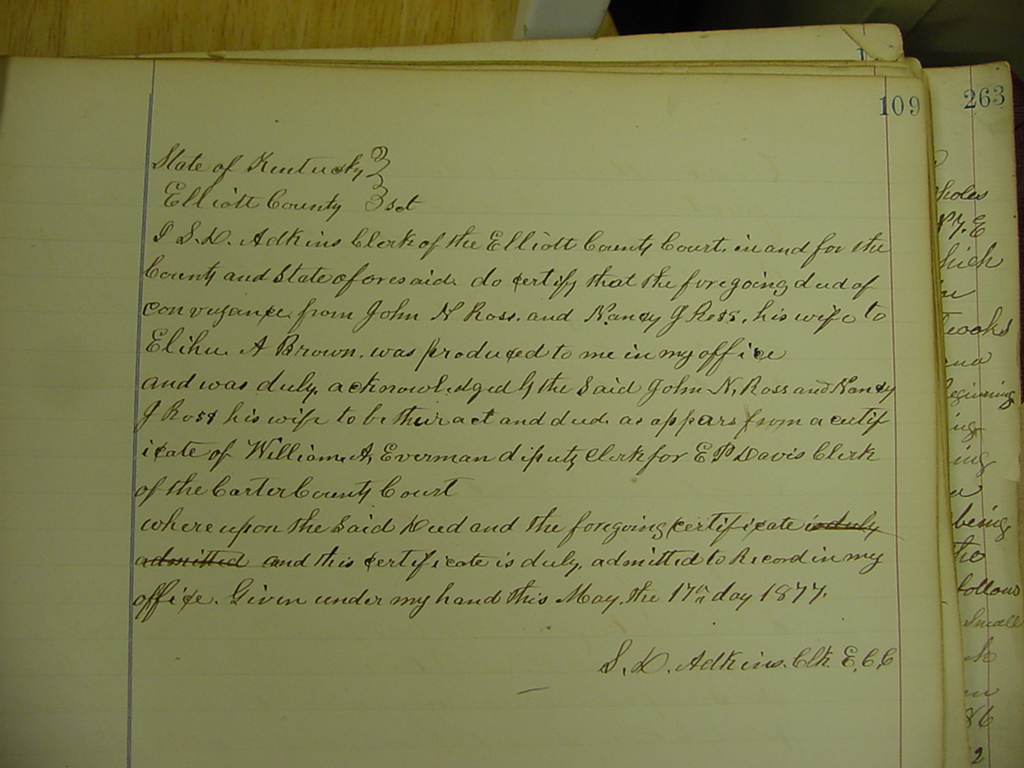 109
263
State of Kentucky }
Elliott County } sct
I S.D. Adkins Clerk of the Elliott County Court, in and for the
County and State aforesaid do certify that the foregoing deed of
conveyance from John N Ross. and Nancy J Ross, his wife to
Elihu A Brown. was produced to me in my office
and was duly, acknowledged by the said John N. Ross and Nancy
J Ross his wife to be their act and deed as appears from a certif
icate of William A, Everman deputy clerk for E P Davis Clerk
of the Carter County Court
where upon the said Deed and the foregoing certificate is duly
admitted and this certificate is duly, admitted to Record in my
office. Given under my hand this May, the 17th day 1877.
S. D. Adkins. Clk E.C.C